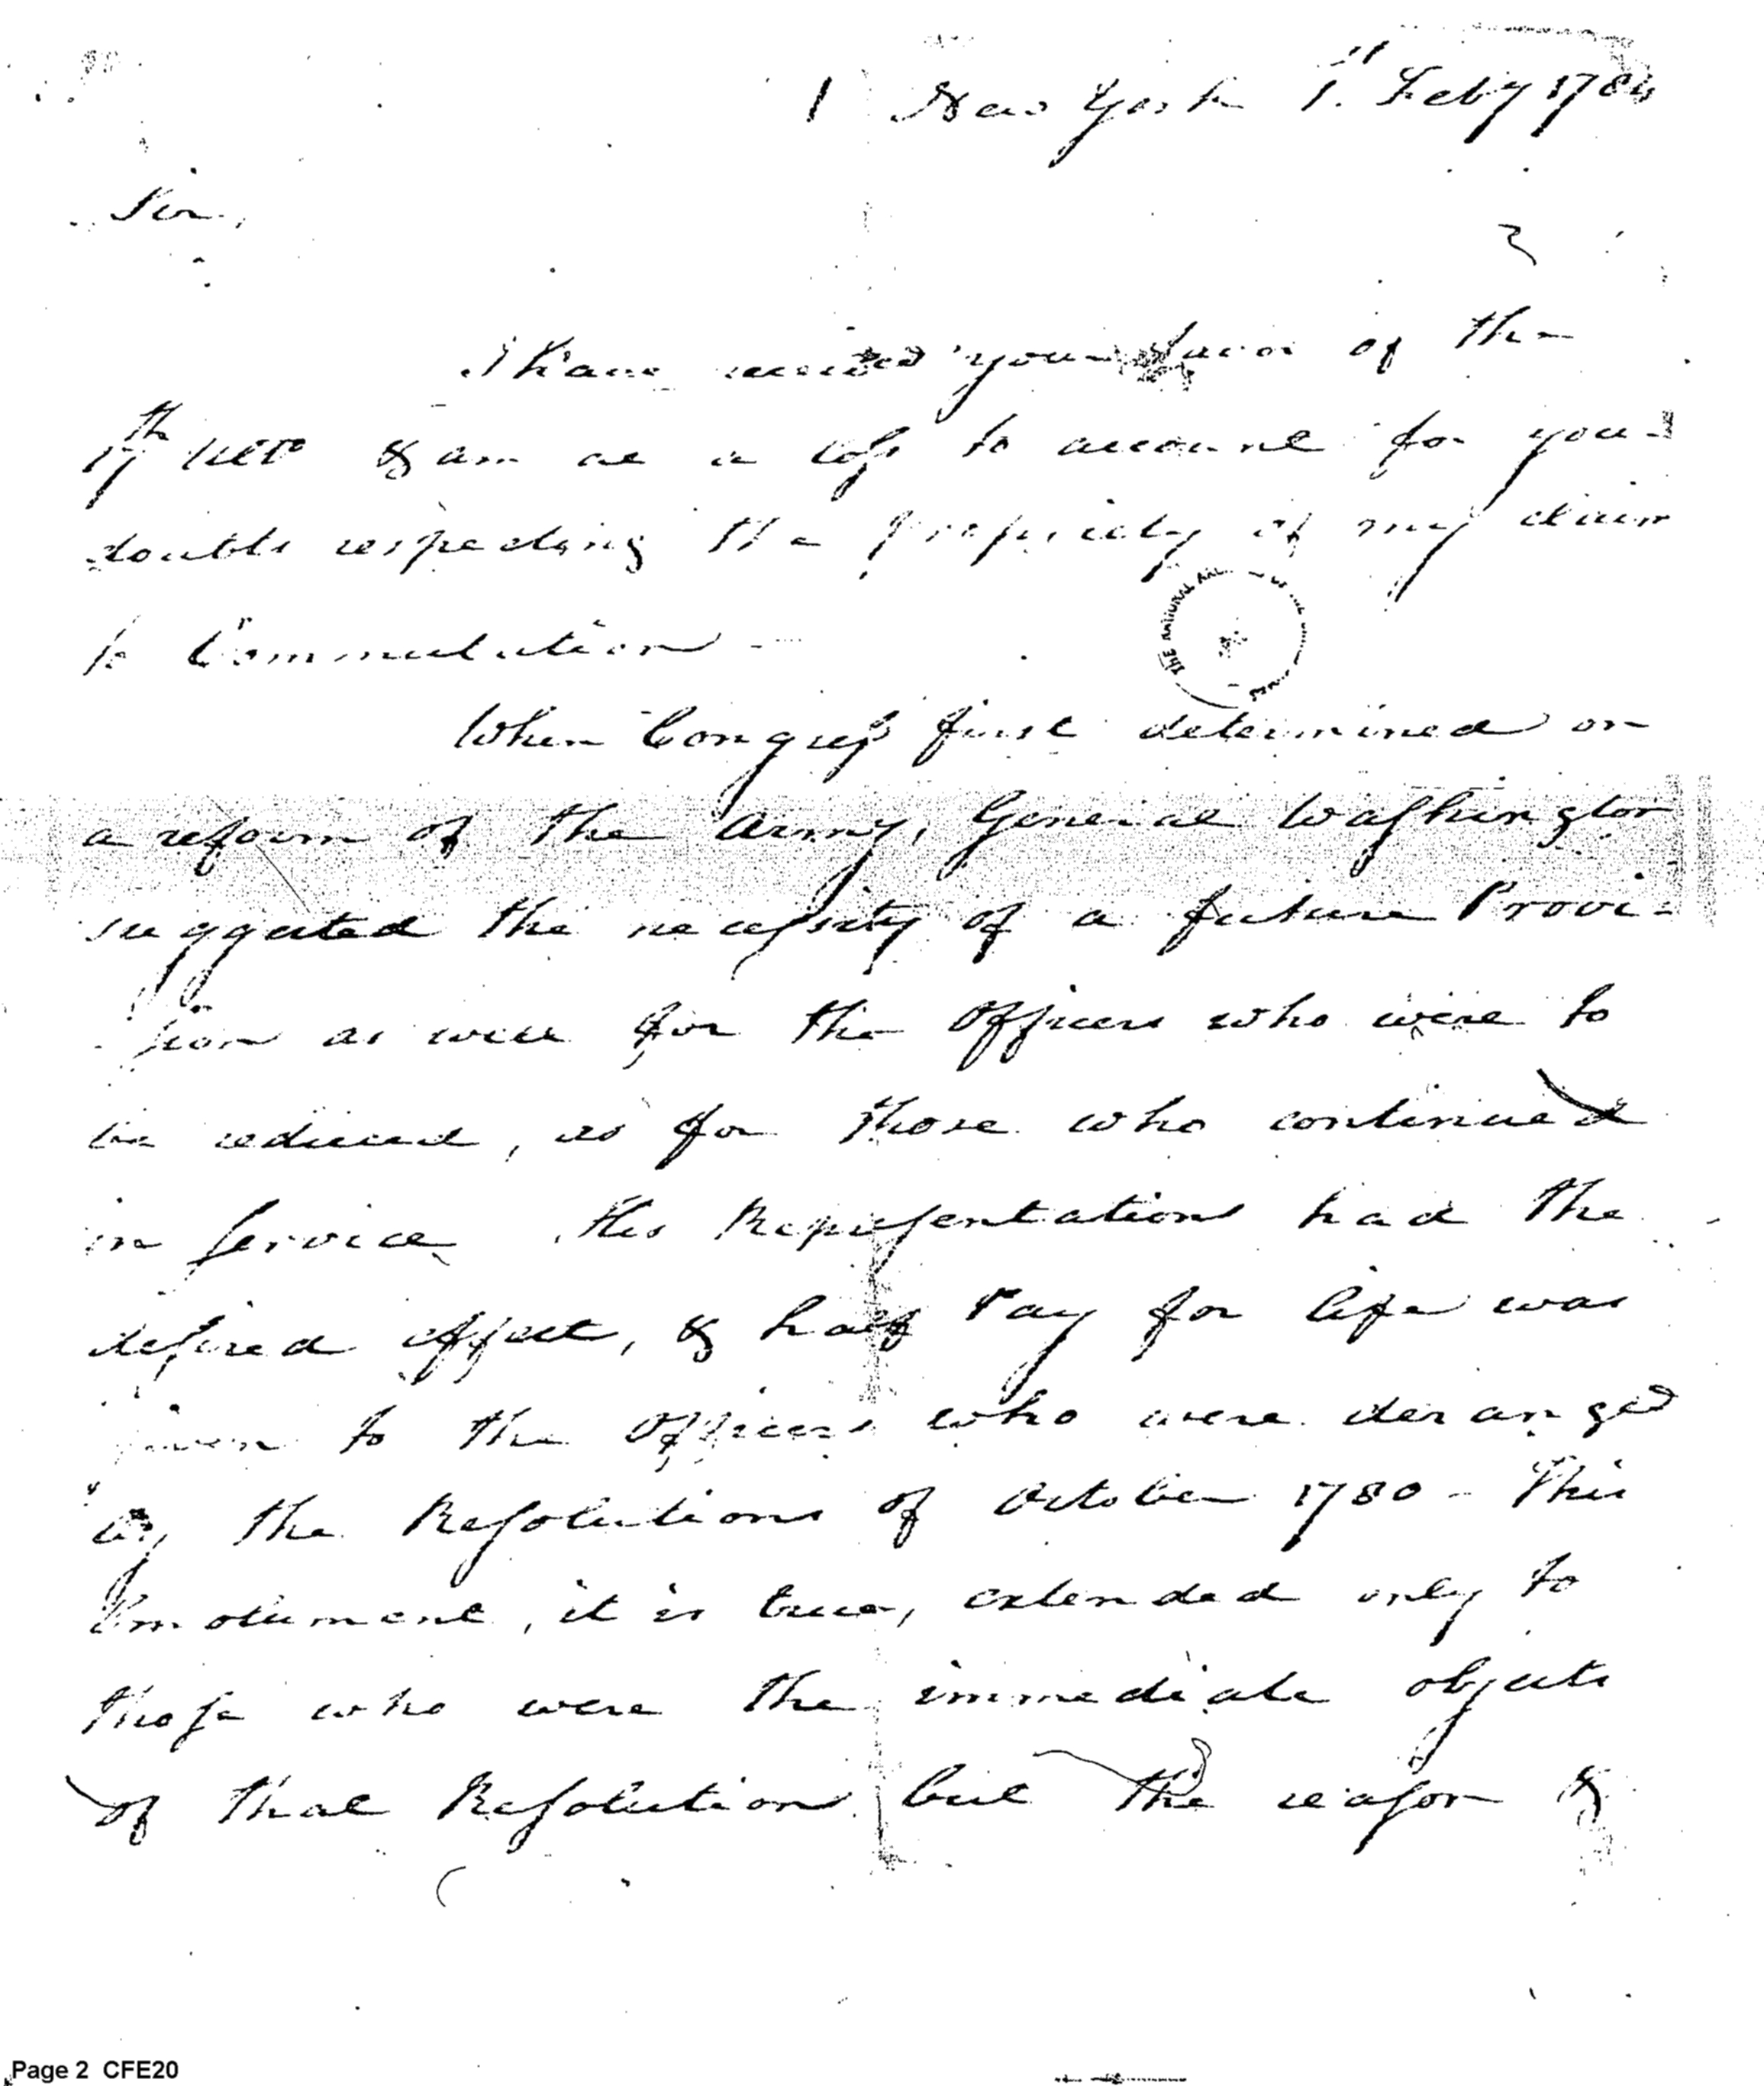 New York 1st Feby 1784
Sir,
I have received your favor of the
17th Ulto & am at a loss to account for your
doubts respecting the propriety of my claim
to Commutation —
When Congress first determined on
a reform of the Army, General Washington
suggested the necessity of a future Provi-
- sion as well for the Officers who were to
be reduced, as for those who continued
in Service. His Representations had the
desired effect, & half Pay for life was
given to the Officers who were deranged
by the Resolutions of October 1780 - This
Emolument, it is true, extended only to
those who were the immediate objects
of that Resolution but the reason &
THE NATIONAL
Page 2 CFE20